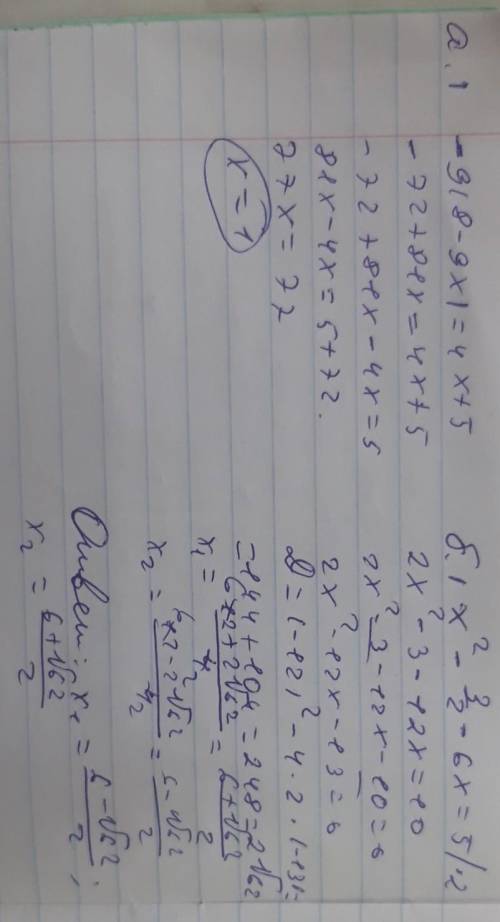 а.) -9(8-9x)=4x+5
-72+81x=4x+5
-72+81x-4x=5
81x-4x=5+72.
77x=77
x=1
б.) x²-3/2-6x=5/·2
2x²-3-12x=10
2x²-3-12x-10=0
2x²-12x-13=0
D=(-12)²-4·2·(-13)=
=144+104=248=2√62
x₁=(12+2√62)/4=(6+√62)/2
x₂=(12-2√62)/4=(6-√62)/2
Ответ: x₁=(6-√62)/2;
x₂=(6+√62)/2